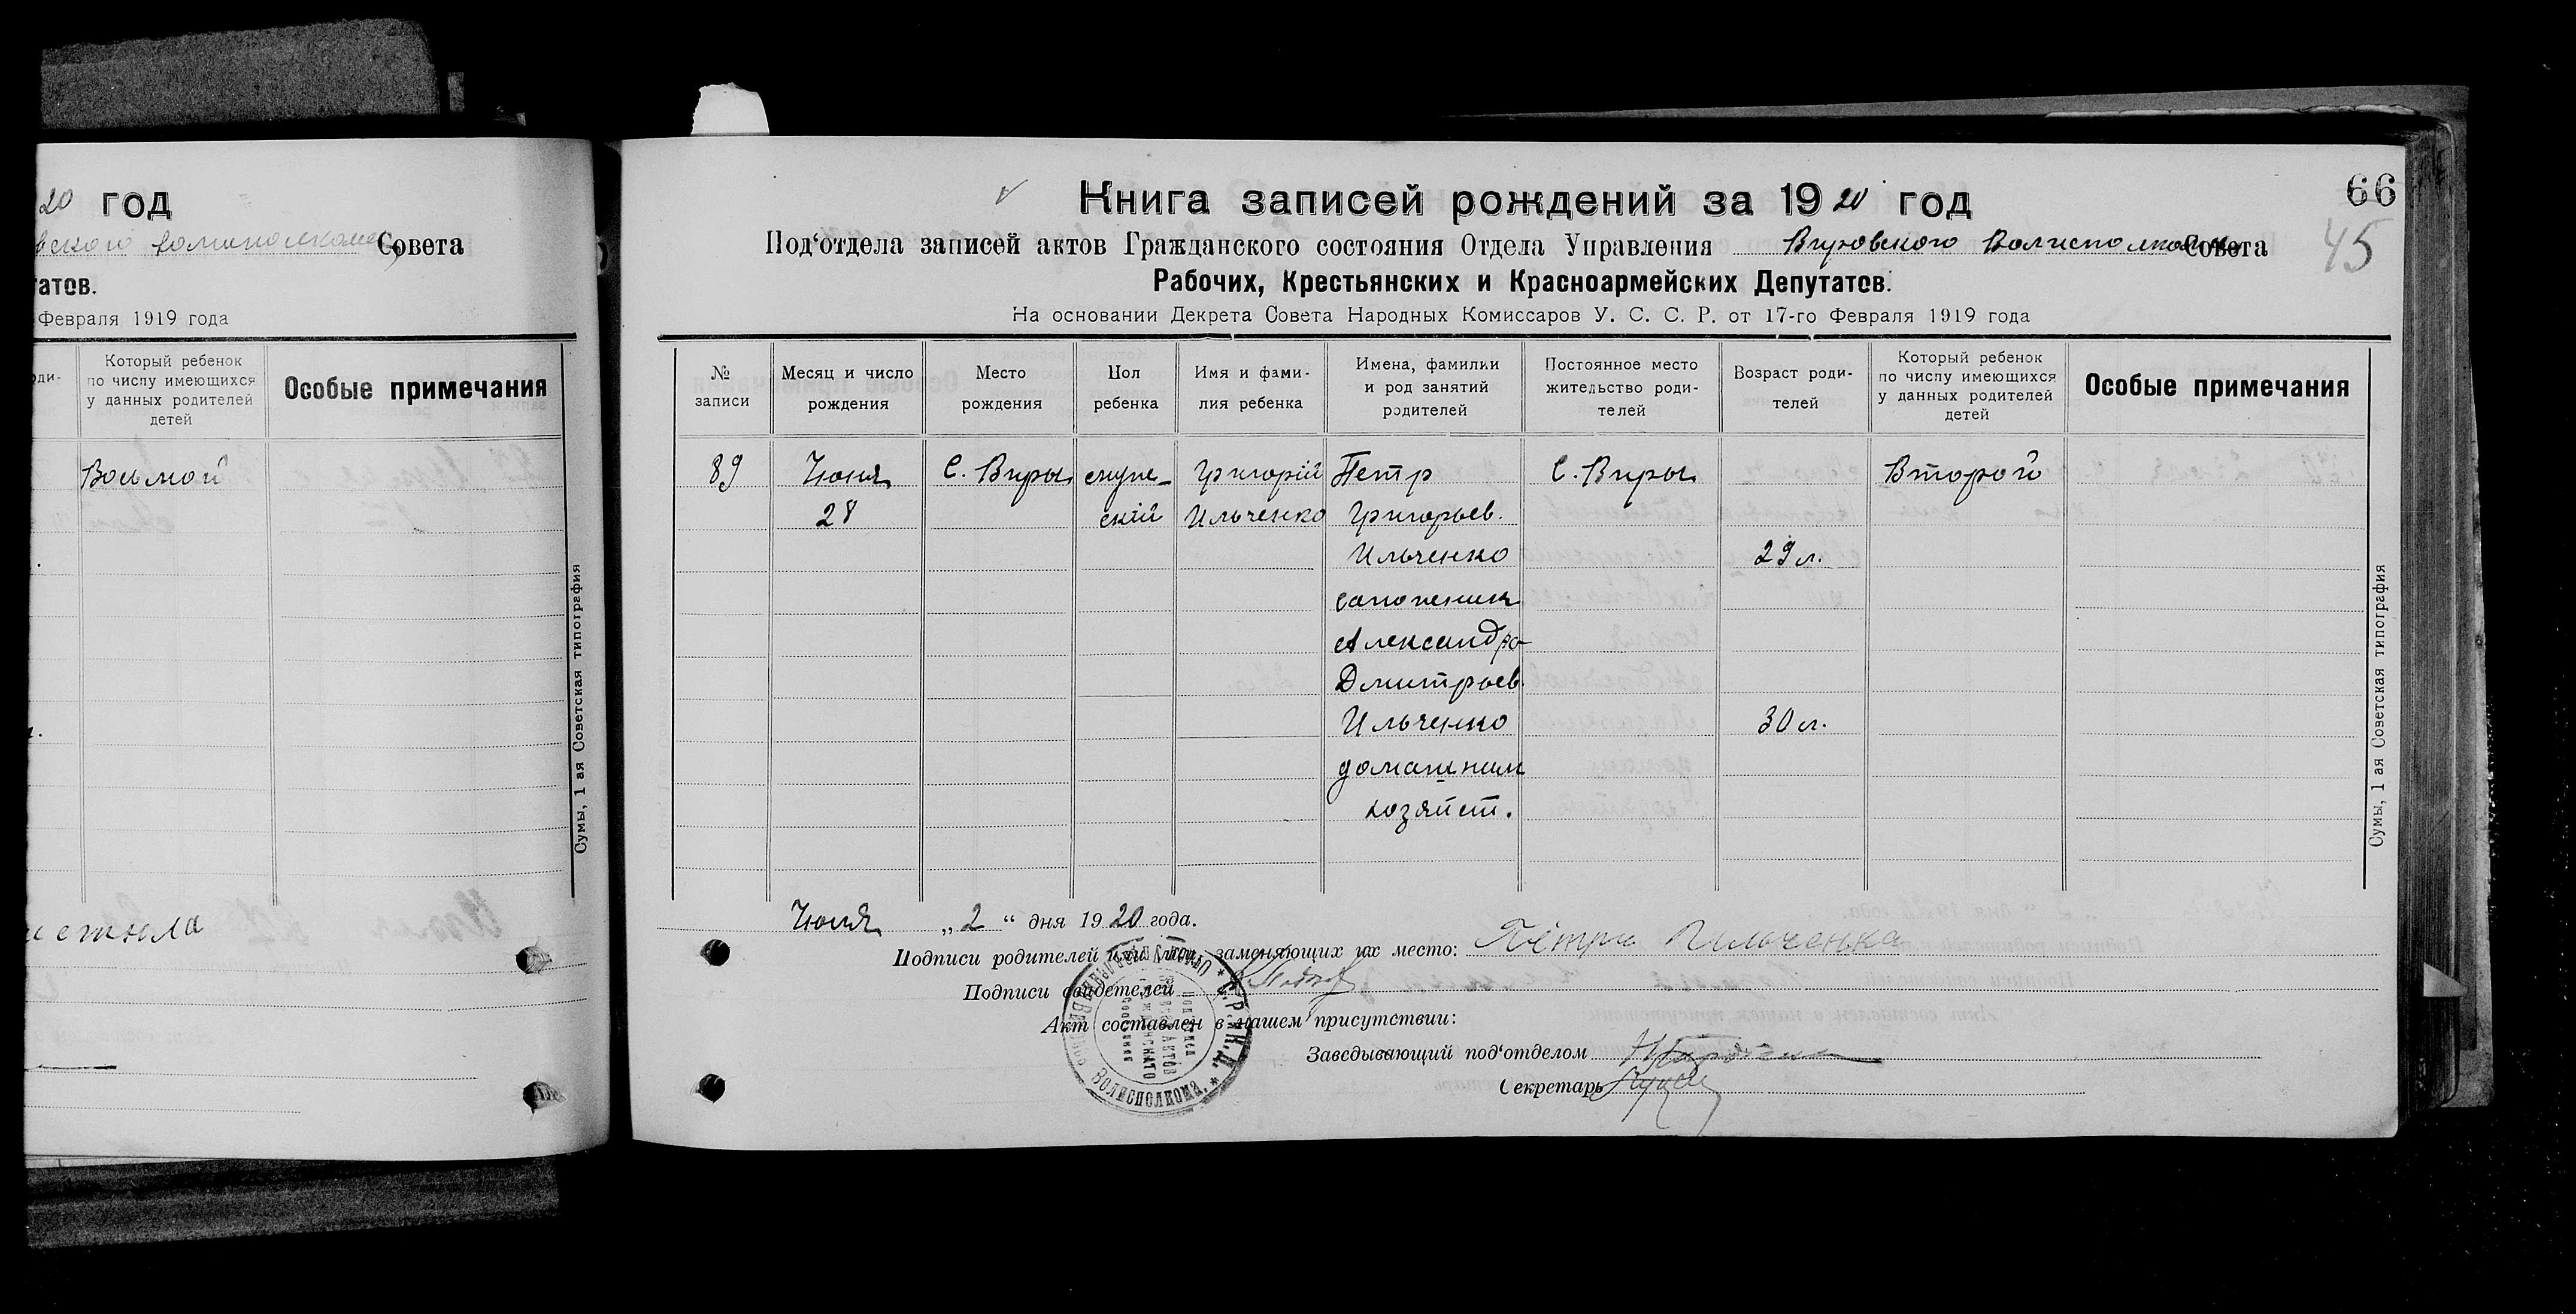 20 год
вского волисполкома Совета
татов.
Февраля 1919 года
оди-
Который ребенок
по числу имеющихся
у данных родителей
детей
Особые примечания
Восьмой
Сумы, 1 ая Советская типография
66
45
Книга записей рождений за 1920 год
Под‘отдела записей актов Гражданского состояния Отдела Управления Вировского Волисполкома Совета
Рабочих, Крестьянских и Красноармейских Депутатов.
На основании Декрета Совета Народных Комиссаров У. С. С. Р. от 17-го Февраля 1919 года
№
записи
Месяц и число
рождения
Место
рождения
Пол
ребенка
Имя и фами-
лия ребенка
Имена, фамилки
и род занятий
родителей
Постоянное место
жительство роди-
телей
Возраст роди-
телей
Который ребенок
по числу имеющихся
у данных родителей
детей
Особые примечания
89
Июня
28
С. Виры
муже-
скій
Григорій
Ильченко
Петр
Григорьев.
Ильченко
сапожник
Александра
Дмитрьев.
Ильченко
домашним
хозяйст.
С. Виры
29 л.
30 л.
Второй
Сумы, 1 ая Советская типография
Июля „2“ дня 1920 года.
Подписи родителей или лиц, заменяющих их место: Пётри Ильченка
Подписи свидетелей
Акт составлен в нашем присутствии:
Заведывающий под‘отделом
Секретарь
Волисполкома.